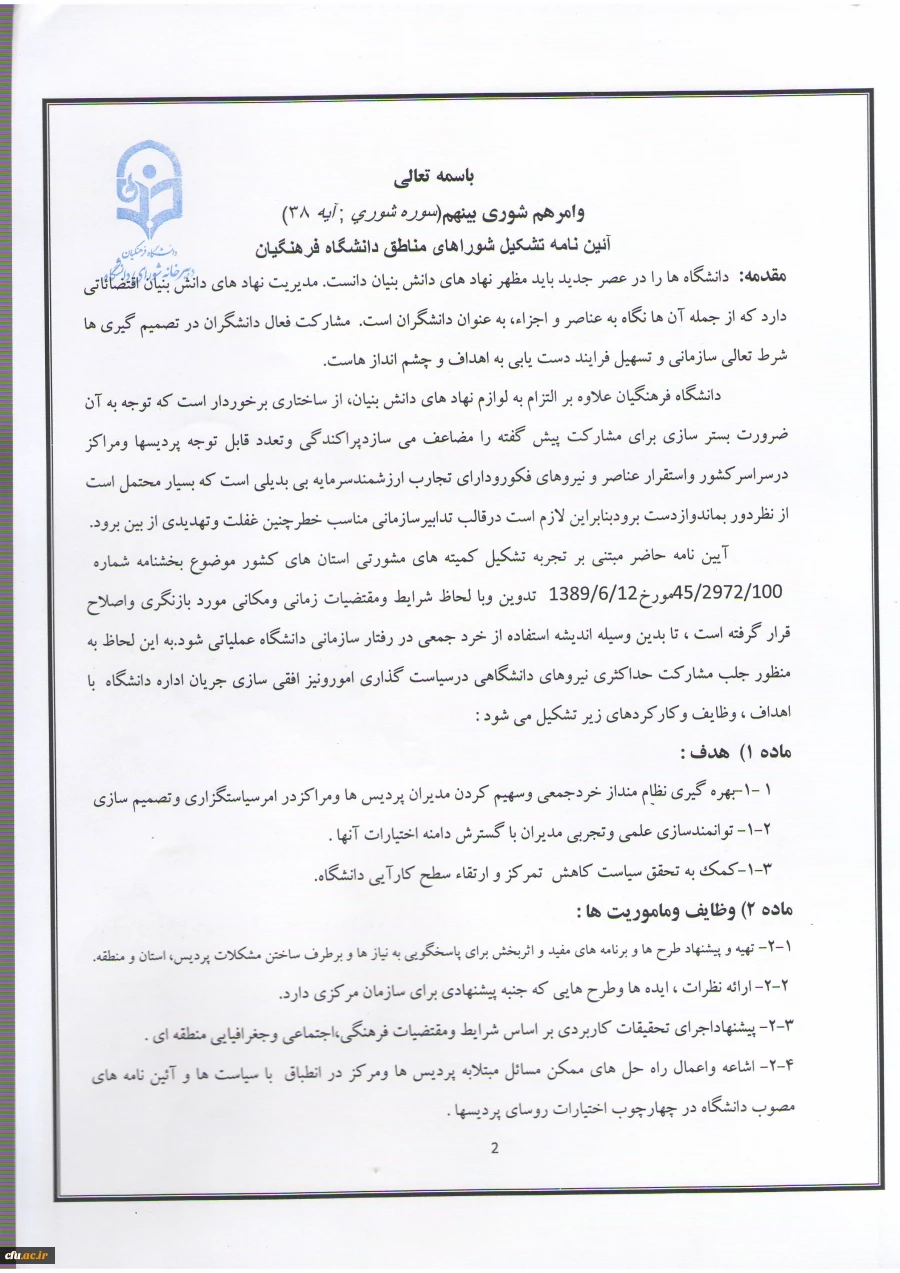 باسمه تعالی
وامرهم شوری بینهم(سوره شوري ; آیه ۳۸)
آئین نامه تشکیل شوراهای مناطق دانشگاه فرهنگیان
دانشگاه فرهنگیان
دبیرخانه شورای دانشگاه
مقدمه: دانشگاه ها را در عصر جدید باید مظهر نهاد های دانش بنیان دانست. مدیریت نهاد های دانش بنیان اقتضائاتی
دارد که از جمله آن ها نگاه به عناصر و اجزاء، به عنوان دانشگران است. مشارکت فعال دانشگران در تصمیم گیری ها
شرط تعالی سازمانی و تسهیل فرایند دست یابی به اهداف و چشم انداز هاست.
دانشگاه فرهنگیان علاوه بر التزام به لوازم نهاد های دانش بنیان، از ساختاری برخوردار است که توجه به آن
ضرورت بستر سازی برای مشارکت پیش گفته را مضاعف می سازدپراکندگی وتعدد قابل توجه پردیسها ومراکز
درسراسرکشور واستقرار عناصر و نیروهای فکورودارای تجارب ارزشمندسرمایه بی بدیلی است که بسیار محتمل است
از نظردور بماندوازدست برودبنابراین لازم است درقالب تدابیرسازمانی مناسب خطرچنین غفلت وتهدیدی از بین برود.
آیین نامه حاضر مبتنی بر تجربه تشکیل کمیته های مشورتی استان های کشور موضوع بخشنامه شماره
45/2972/100مورخ1389/6/12 تدوین وبا لحاظ شرایط ومقتضیات زمانی ومکانی مورد بازنگری واصلاح
قرار گرفته است ، تا بدین وسیله اندیشه استفاده از خرد جمعی در رفتار سازمانی دانشگاه عملیاتی شود.به این لحاظ به
منظور جلب مشارکت حداکثری نیروهای دانشگاهی درسیاست گذاری امورونیز افقی سازی جریان اداره دانشگاه با
اهداف ، وظایف وکارکردهای زیر تشکیل می شود :
ماده ۱) هدف :
۱-۱-بهره گیری نظام منداز خردجمعی وسهیم کردن مدیران پردیس ها ومراکزدر امرسیاستگزاری وتصمیم سازی
۱-۲- توانمندسازی علمی وتجربی مدیران با گسترش دامنه اختیارات آنها .
۱-۳-کمک به تحقق سیاست کاهش تمرکز و ارتقاء سطح کارآیی دانشگاه.
ماده ۲) وظایف وماموریت ها :
۲-۱- تهیه و پیشنهاد طرح ها و برنامه های مفید و اثربخش برای پاسخگویی به نیاز ها و برطرف ساختن مشکلات پردیس، استان و منطقه.
۲-۲- ارائه نظرات ، ایده ها وطرح هایی که جنبه پیشنهادی برای سازمان مرکزی دارد.
۲-۳- پیشنهاداجرای تحقیقات کاربردی بر اساس شرایط ومقتضیات فرهنگی،اجتماعی وجغرافیایی منطقه ای .
۲-۴- اشاعه واعمال راه حل های ممکن مسائل مبتلابه پردیس ها ومرکز در انطباق با سیاست ها و آئین نامه های
مصوب دانشگاه در چهارچوب اختیارات روسای پردیسها .
2
cfu.ac.ir